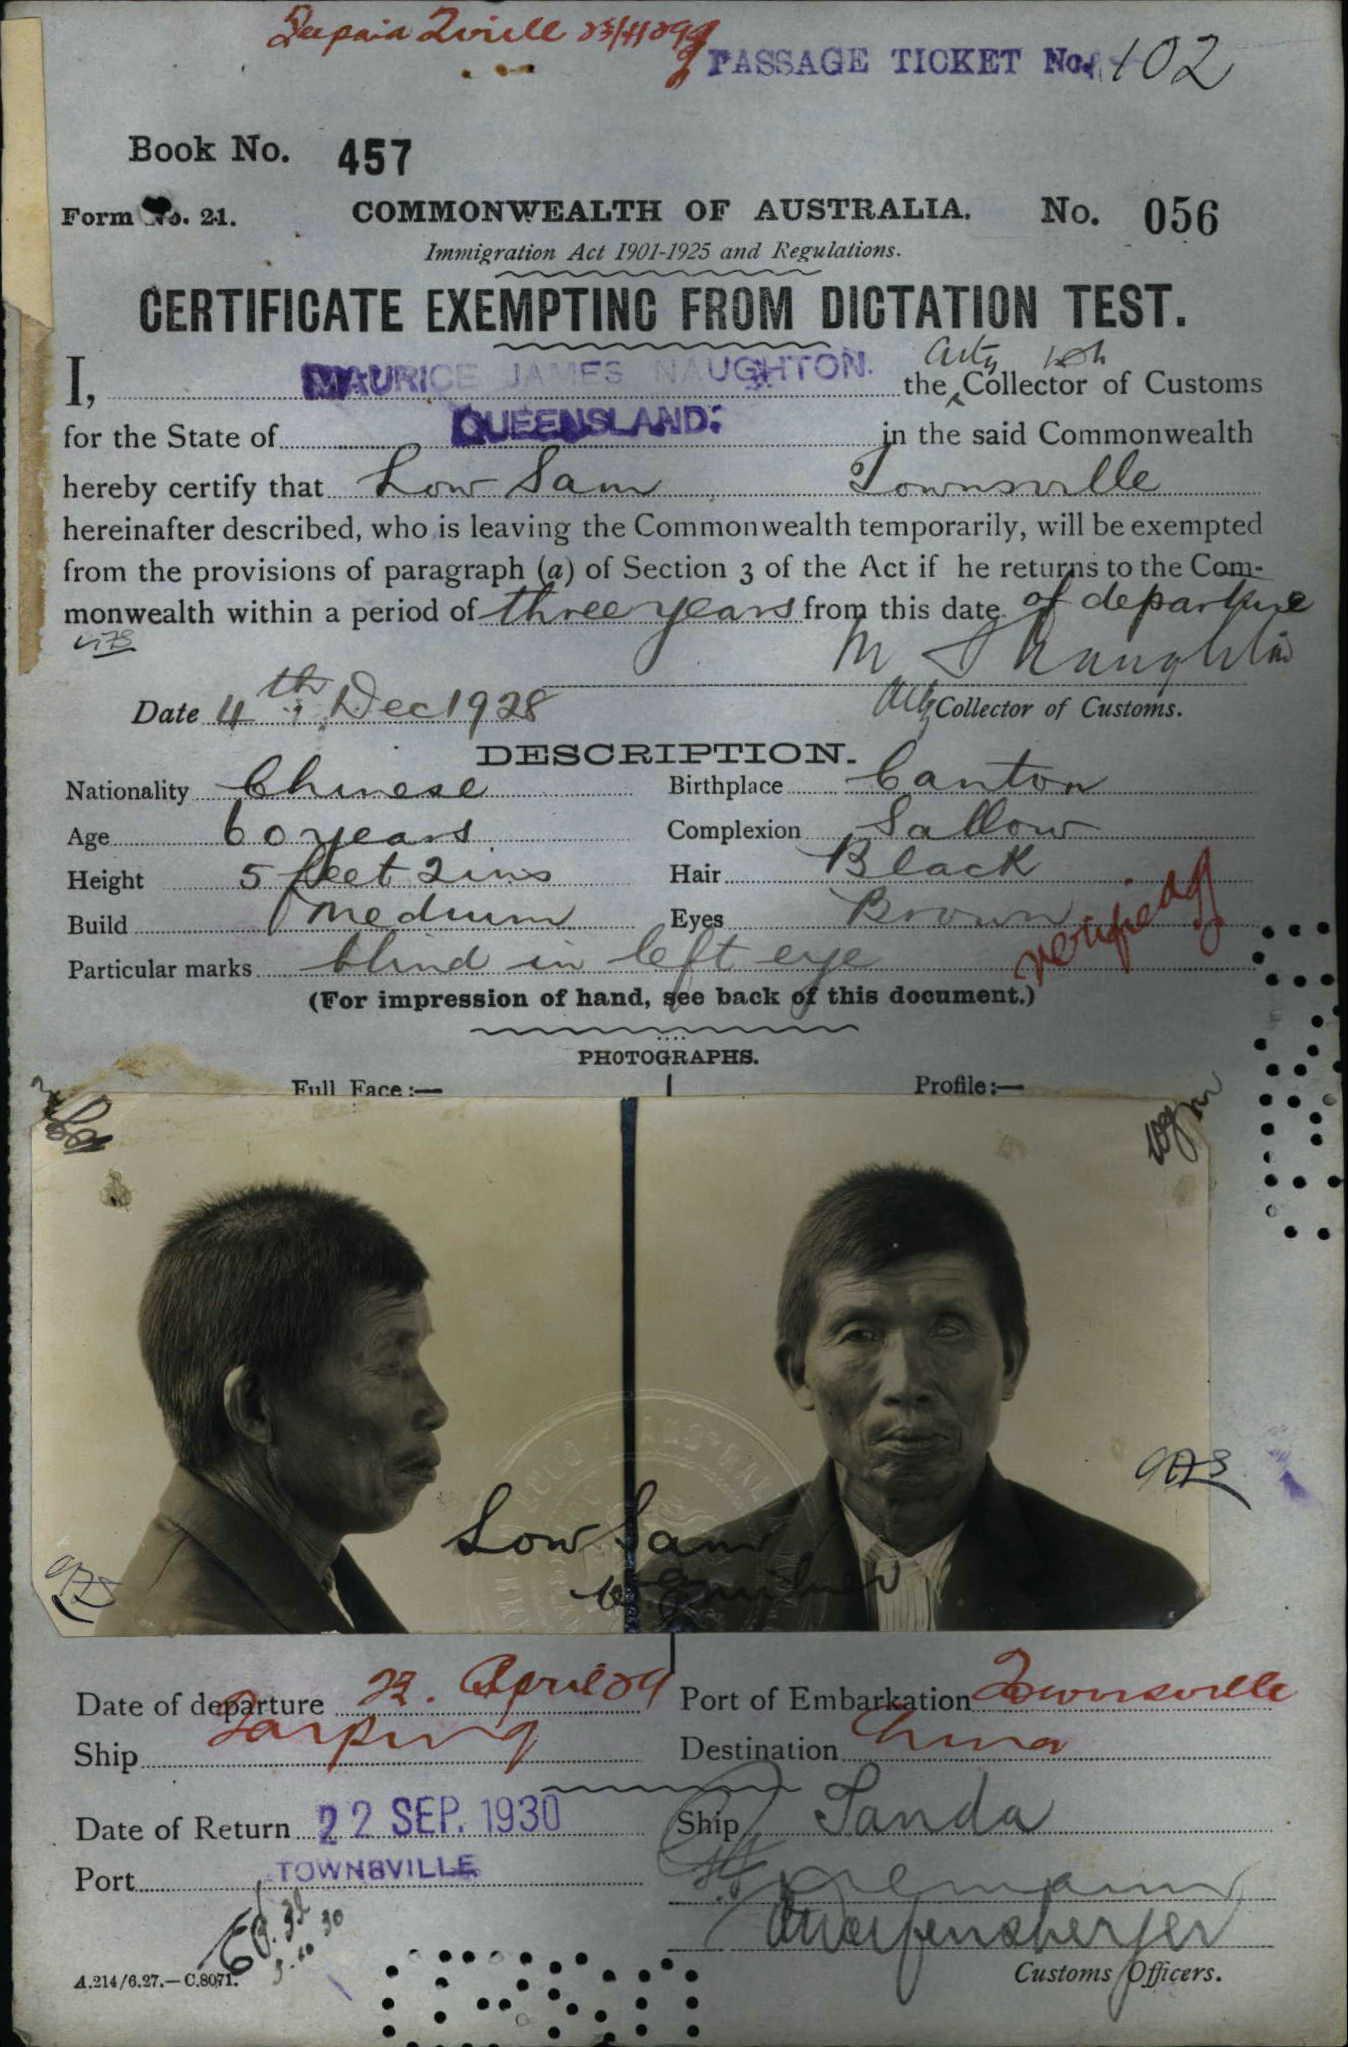 PASSAGE TICKET No. 102
Book No. 457
Form No. 21. COMMONWEALTH OF AUSTRALIA. No. 056
Immigration Act 1901-1925 and Regulations.
CERTIFICATE EXEMPTING FROM DICTATION TEST.
I, MAURICE JAMES NAUGHTON. the Actg Collector of Customs
for the State of QUEENSLAND. in the said Commonwealth
hereby certify that Low Sam Townsville
hereinafter described, who is leaving the Commonwealth temporarily, will be exempted
from the provisions of paragraph (a) of Section 3 of the Act if he returns to the Com-
monwealth within a period of three years from this date of departure
M J Naughton
Date 4th Dec 1928 Actg Collector of Customs.
DESCRIPTION.
Nationality Chinese Birthplace Canton
Age 60 years Complexion Sallow
Height 5 feet 2 ins Hair Black
Build medium Eyes Brown
verified
Particular marks blind in left eye
(For impression of hand, see back of this document.)
PHOTOGRAPHS.
Full Face:— Profile:—
Low Sam
Date of departure 22. April 29 Port of Embarkation Townsville
Ship Taiping Destination China
Date of Return 22 SEP. 1930 Ship Tanda
Port TOWNSVILLE
A.214/6.27.—C.8071. Customs Officers.